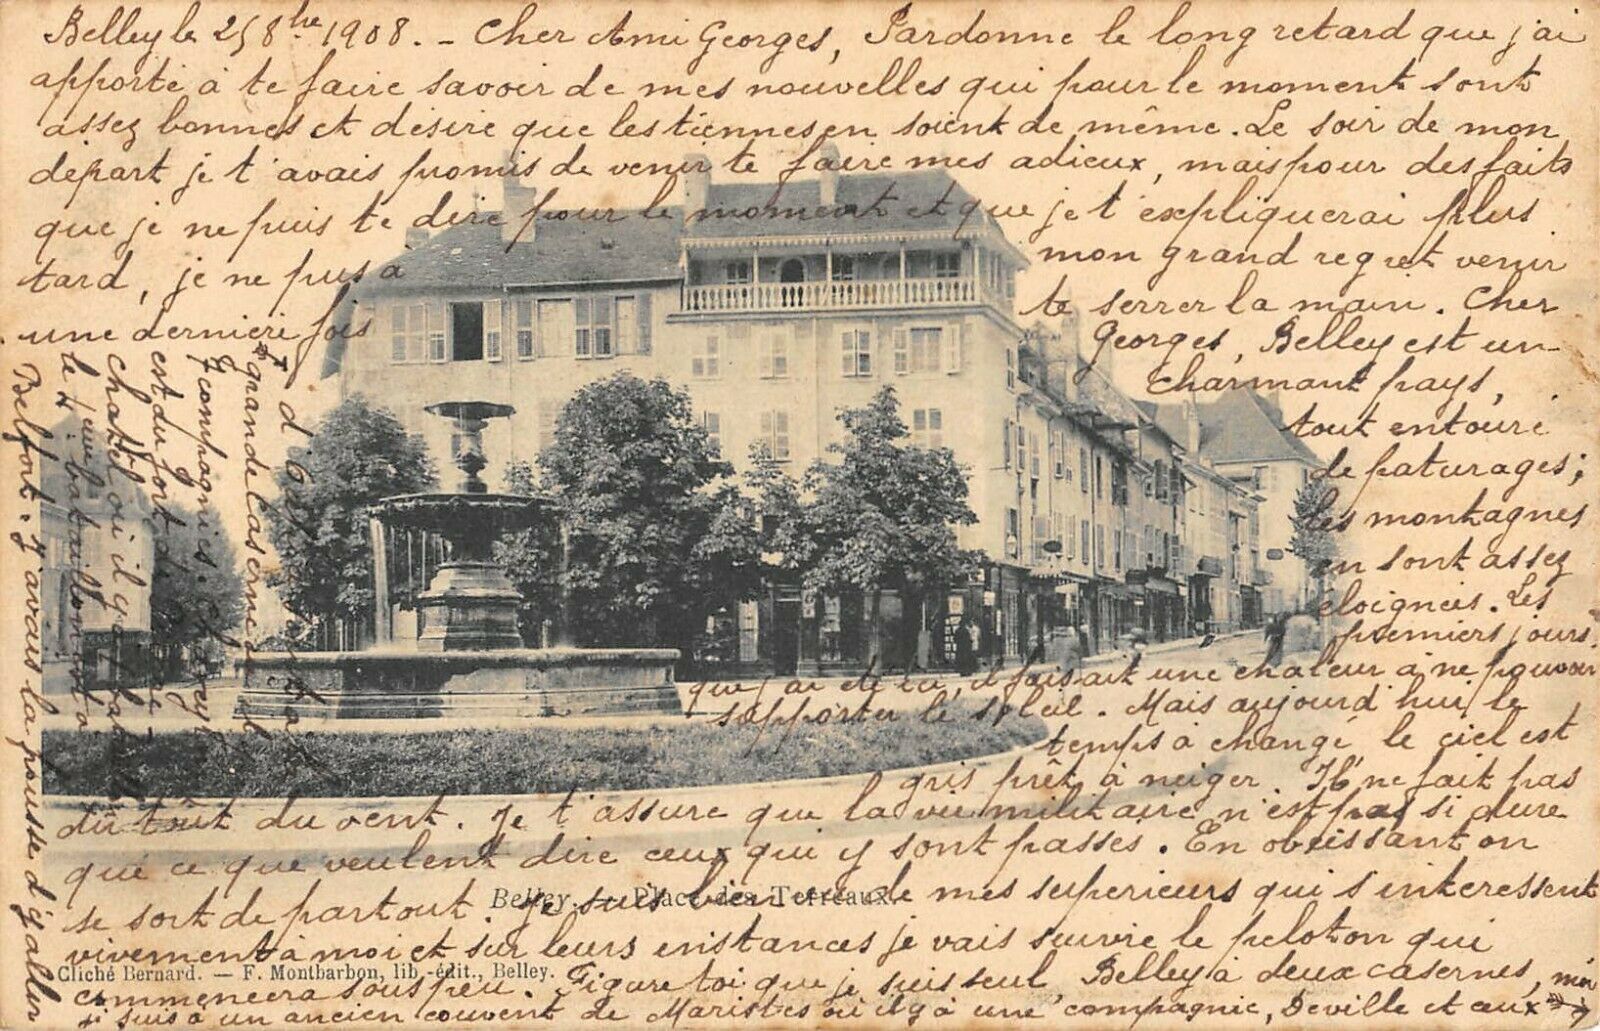 Belley le 25 8bre 1908. – Cher Ami Georges, Pardonne le long retard que j'ai
apporté à te faire savoir de mes nouvelles qui pour le moment sont
assez bonnes et désire que les tiennes en soient de même. Le soir de mon
départ je t'avais promis de venir te faire mes adieux, mais pour des faits
que je ne puis te dire pour le moment et que je t'expliquerai plus
tard, je ne pus à
mon grand regret venir
une dernière fois
te serrer la main. Cher
Georges, Belley est un
charmant pays,
tout entouré
de paturages;
les montagnes
en sont assez
éloignées. Les
premiers jours
que j'ai été ici, il faisait une chaleur à ne pouvoir
supporter le soleil. Mais aujourd'hui le
temps à changé le ciel est
gris prêt à neiger. Il ne fait pas
du tout du vent. Je t'assure que la vie militaire n'est pas si dure
que ce que veulent dire ceux qui y sont passés. En obéissant on
se sort de partout. Je suis bien vu de mes superieurs qui s'interessent
Belley. — Place des Terreaux.
vivement à moi et sur leurs instances je vais suivre le peloton qui
Cliché Bernard. — F. Montbarbon, lib.-édit., Belley.
commencera sous peu. Figure toi que je suis seul Belley à deux casernes, moi
je suis à un ancien couvent de Maristes où il y à une compagnie, Deville et ceux
d'
grande caserne
7 compagnies.
est du fort de
Chatel où il y
le bataillon
Belfort. J'avais la pousse d'y aller